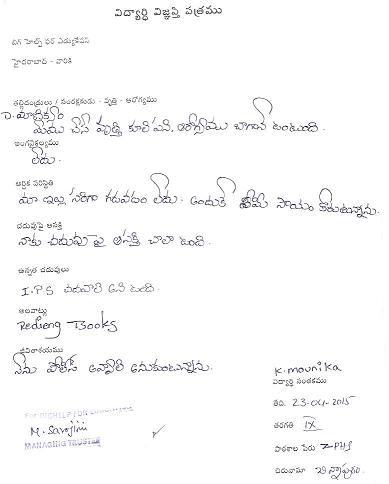 విద్యార్థి విజ్ఞప్తి పత్రము
బిగ్ హెల్ప్ ఫర్ ఎడ్యుకేషన్
హైదరాబాద్ - వారికి
తల్లిదండ్రులు / సంరక్షకుడు - వృత్తి - ఆరోగ్యము
మేము చేసే వృత్తి కూలి పని, ఆరోగ్యము బాగానే ఉంటుంది.
అంగవైకల్యము
లేదు.
ఆర్థిక పరిస్థితి
మా ఇల్లు సరిగా గడవదం లేదు. అందుకే మీ సాయం కోరుతున్నాను.
చదువుపై ఆసక్తి
నాకు చదువు పై ఆసక్తి చాలా ఉంది.
ఉన్నత చదువులు
I.P.S చదవాలి అని ఉంది.
అలవాట్లు
Redieng Books
జీవితాశయము
నేను పోలీస్ అవ్వాలి అనుకుంటున్నాను.
K. mounika
విద్యార్థి సంతకము
తేది. 23-04-2015
తరగతి IX
పాఠశాల పేరు ZPHS
చిరునామా
For BIGHELP FOR EDUCATION
M. Sarojini
MANAGING TRUSTEE